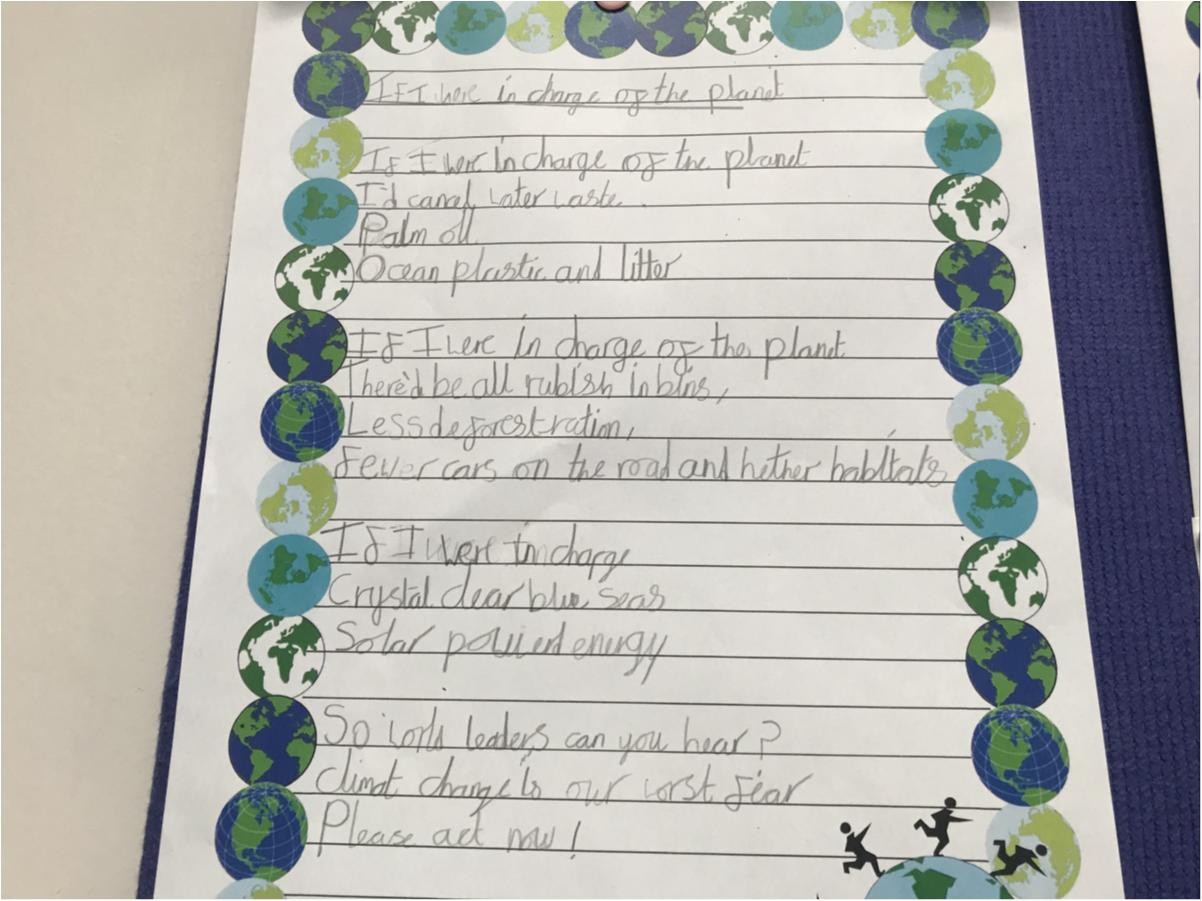 If I were in charge of the planet
If I were in charge of the planet
I'd cancel water waste.
Palm oil
Ocean plastic and litter
If I were in charge of the planet
There'd be all rubish in bins,
Less deforestration,
fewer cars on the road and habitats
If I were in charge
Crystal clear blue seas
Solar powered energy
So world leaders can you hear?
climat change is our worst fear
Please act now!